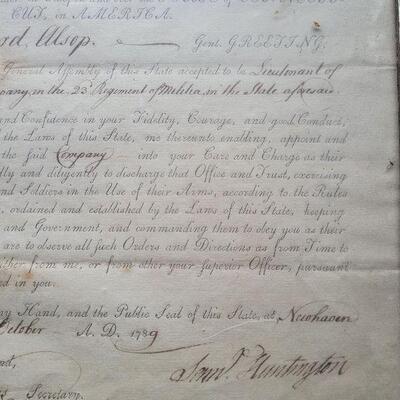 CUT, in AMERICA.
ord Alsop. Gent. GREETING.
General Assembly of this State accepted to be Lieutenant of
pany, in the 23d Regiment of Militia, in the State aforesaid
and Confidence in your Fidelity, Courage, and good Conduct,
the Laws of this State, me thereunto enabling, appoint and
the said Company into your Care and Charge as their
fully and diligently to discharge that Office and Trust, exercising
and Soldiers in the Use of their Arms, according to the Rules
, ordained and established by the Laws of this State, keeping
and Government, and commanding them to obey you as their
are to observe all such Orders and Directions as from Time to
ither from me, or from other your superior Officer, pursuant
ed in you.
my Hand, and the Public Seal of this State, at Newhaven
October A. D. 1789
nd,
Saml. Huntington
Secretary.